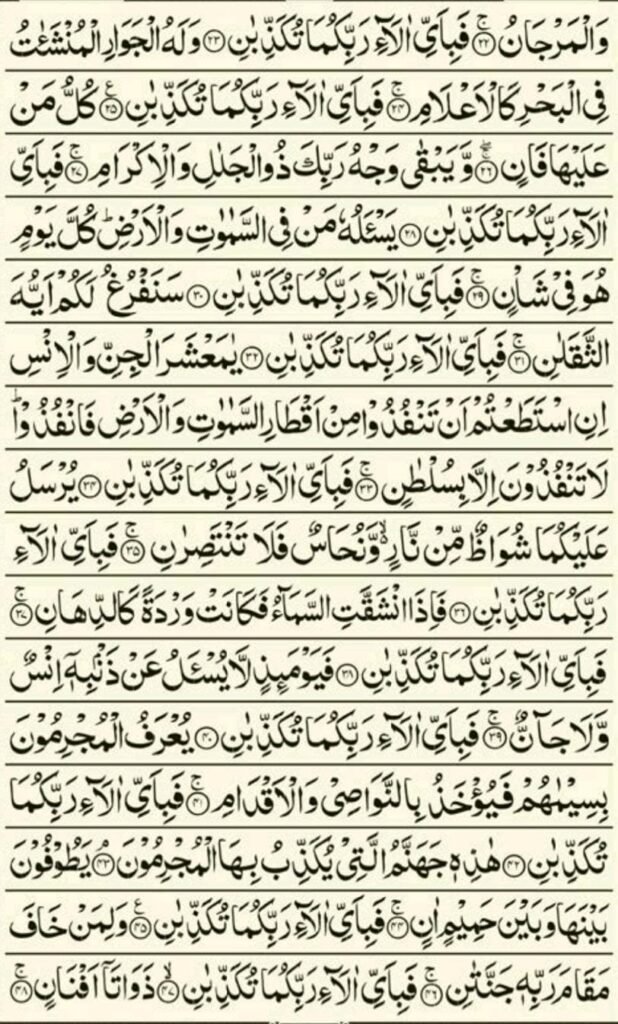 وَالْمَرْجَانُ ۚ﴿۲۲﴾ فَبِاَيِّ اٰلَآءِ رَبِّكُمَا تُكَذِّبٰنِ ﴿۲۳﴾ وَلَهُ الْجَوَارِ الْمُنْشَـٰٔتُ
فِي الْبَحْرِ كَالْاَعْلَامِ ۚ﴿۲۴﴾ فَبِاَيِّ اٰلَآءِ رَبِّكُمَا تُكَذِّبٰنِ ﴿۲۵﴾ؑ كُلُّ مَنْ
عَلَيْهَا فَانٍ ۚۖ﴿۲۶﴾ وَّيَبْقٰى وَجْهُ رَبِّكَ ذُو الْجَلٰلِ وَالْاِكْرَامِ ۚ﴿۲۷﴾ فَبِاَيِّ
اٰلَآءِ رَبِّكُمَا تُكَذِّبٰنِ ﴿۲۸﴾ يَسْـَٔلُهٗ مَنْ فِي السَّمٰوٰتِ وَالْاَرْضِ ؕ كُلَّ يَوْمٍ
هُوَ فِيْ شَاْنٍ ۚ﴿۲۹﴾ فَبِاَيِّ اٰلَآءِ رَبِّكُمَا تُكَذِّبٰنِ ﴿۳۰﴾ سَنَفْرُغُ لَكُمْ اَيُّهَ
الثَّقَلٰنِ ۚ﴿۳۱﴾ فَبِاَيِّ اٰلَآءِ رَبِّكُمَا تُكَذِّبٰنِ ﴿۳۲﴾ يٰمَعْشَرَ الْجِنِّ وَالْاِنْسِ
اِنِ اسْتَطَعْتُمْ اَنْ تَنْفُذُوْا مِنْ اَقْطَارِ السَّمٰوٰتِ وَالْاَرْضِ فَانْفُذُوْا ؕ
لَا تَنْفُذُوْنَ اِلَّا بِسُلْطٰنٍ ۚ﴿۳۳﴾ فَبِاَيِّ اٰلَآءِ رَبِّكُمَا تُكَذِّبٰنِ ﴿۳۴﴾ يُرْسَلُ
عَلَيْكُمَا شُوَاظٌ مِّنْ نَّارٍ ۙ وَّنُحَاسٌ فَلَا تَنْتَصِرٰنِ ۚ﴿۳۵﴾ فَبِاَيِّ اٰلَآءِ
رَبِّكُمَا تُكَذِّبٰنِ ﴿۳۶﴾ فَاِذَا انْشَقَّتِ السَّمَآءُ فَكَانَتْ وَرْدَةً كَالدِّهَانِ ۚ﴿۳۷﴾
فَبِاَيِّ اٰلَآءِ رَبِّكُمَا تُكَذِّبٰنِ ﴿۳۸﴾ فَيَوْمَئِذٍ لَّا يُسْـَٔلُ عَنْ ذَنْۢبِهٖۤ اِنْسٌ
وَّلَا جَآنٌّ ۚ﴿۳۹﴾ فَبِاَيِّ اٰلَآءِ رَبِّكُمَا تُكَذِّبٰنِ ﴿۴۰﴾ يُعْرَفُ الْمُجْرِمُوْنَ
بِسِيْمٰهُمْ فَيُؤْخَذُ بِالنَّوَاصِيْ وَالْاَقْدَامِ ۚ﴿۴۱﴾ فَبِاَيِّ اٰلَآءِ رَبِّكُمَا
تُكَذِّبٰنِ ﴿۴۲﴾ هٰذِهٖ جَهَنَّمُ الَّتِيْ يُكَذِّبُ بِهَا الْمُجْرِمُوْنَ ۘ﴿۴۳﴾ يَطُوْفُوْنَ
بَيْنَهَا وَبَيْنَ حَمِيْمٍ اٰنٍ ۚ﴿۴۴﴾ فَبِاَيِّ اٰلَآءِ رَبِّكُمَا تُكَذِّبٰنِ ﴿۴۵﴾ؑ وَلِمَنْ خَافَ
مَقَامَ رَبِّهٖ جَنَّتٰنِ ۚ﴿۴۶﴾ فَبِاَيِّ اٰلَآءِ رَبِّكُمَا تُكَذِّبٰنِ ۙ﴿۴۷﴾ ذَوَاتَاۤ اَفْنَانٍ ۚ﴿۴۸﴾